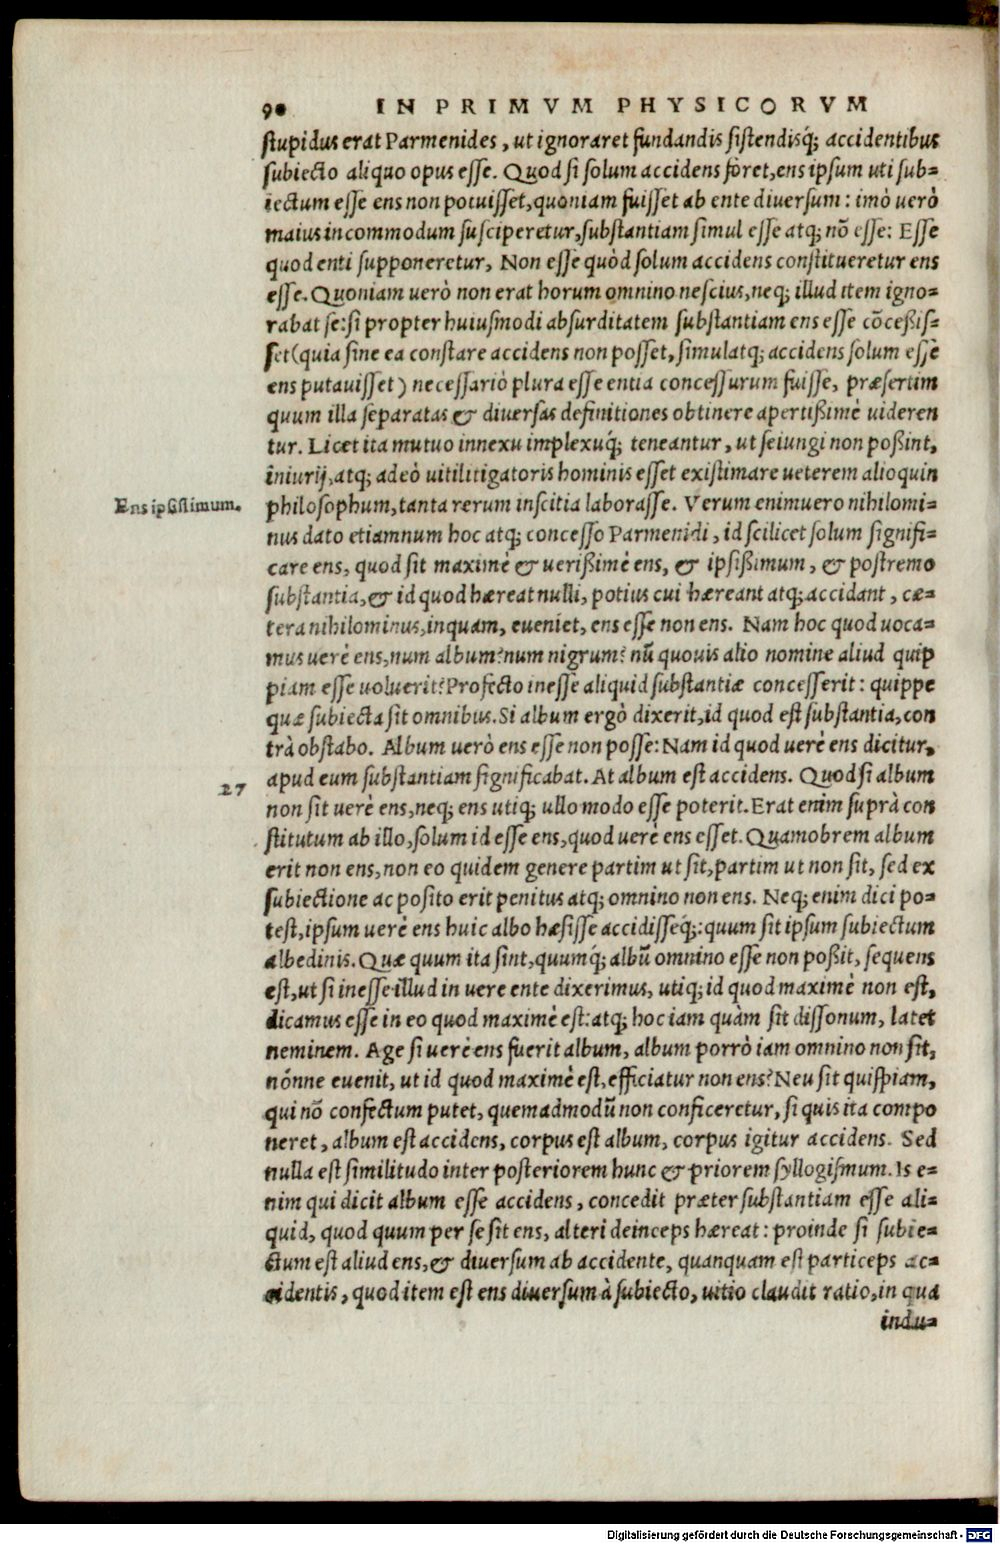 90 IN PRIMVM PHYSICORVM
stupidus erat Parmenides, ut ignoraret fundandis sistendisq́; accidentibus
subiecto aliquo opus esse. Quod si solum accidens foret, ens ipsum uti sub=
iectum esse ens non potuisset, quoniam fuisset ab ente diuersum: imò uerò
maius incommodum susciperetur, substantiam simul esse atq; nõ esse: Esse
quod enti supponeretur, Non esse quòd solum accidens constitueretur ens
esse. Quoniam uerò non erat horum omnino nescius, neq; illud item igno=
rabat se: si propter huiusmodi absurditatem substantiam ens esse cõceßis=
set (quia sine ea constare accidens non posset, simulatq; accidens solum esse
ens putauisset) necessariò plura esse entia concessurum fuisse, præsertim
quum illa separatas & diuersas definitiones obtinere apertißimè uideren
tur. Licet ita mutuo innexu implexuq́; teneantur, ut seiungi non poßint,
iniurij, atq; adeò uitilitigatoris hominis esset existimare ueterem alioquin
Ens ipsissimum.
philosophum, tanta rerum inscitia laborasse. Verum enimuero nihilomi=
nus dato etiamnum hoc atq; concesso Parmenidi, id scilicet solum signifi=
care ens, quod sit maximè & uerißimè ens, & ipsißimum, & postremo
substantia, & id quod hæreat nulli, potius cui hæreant atq; accidant, cæ=
tera nihilominus, inquam, eueniet, ens esse non ens. Nam hoc quod uoca=
mus uerè ens, num album? num nigrum? nũ quouis alio nomine aliud quip
piam esse uoluerit? Profecto inesse aliquid substantiæ concesserit: quippe
quæ subiecta sit omnibus. Si album ergò dixerit, id quod est substantia, con
trà obstabo. Album uerò ens esse non posse: Nam id quod uerè ens dicitur,
apud eum substantiam significabat. At album est accidens. Quod si album
27
non sit uerè ens, neq; ens utiq; ullo modo esse poterit. Erat enim suprà con
stitutum ab illo, solum id esse ens, quod uerè ens esset. Quamobrem album
erit non ens, non eo quidem genere partim ut sit, partim ut non sit, sed ex
subiectione ac posito erit penitus atq; omnino non ens. Neq; enim dici po=
test, ipsum uerè ens huic albo hæsisse accidisseq́;: quum sit ipsum subiectum
albedinis. Quæ quum ita sint, quumq́; albũ omnino esse non poßit, sequens
est, ut si inesse illud in uere ente dixerimus, utiq; id quod maximè non est,
dicamus esse in eo quod maximè est: atq; hoc iam quàm sit dissonum, latet
neminem. Age si uerè ens fuerit album, album porrò iam omnino non sit,
nónne euenit, ut id quod maximè est, efficiatur non ens? Neu sit quispiam,
qui nõ confectum putet, quemadmodũ non conficeretur, si quis ita compo
neret, album est accidens, corpus est album, corpus igitur accidens. Sed
nulla est similitudo inter posteriorem hunc & priorem syllogismum. Is e=
nim qui dicit album esse accidens, concedit præter substantiam esse ali=
quid, quod quum per se sit ens, alteri deinceps hæreat: proinde si subie=
ctum est aliud ens, & diuersum ab accidente, quanquam est particeps ac=
cidentis, quod item est ens diuersum à subiecto, uitio claudit ratio, in qua
indu=
Digitalisierung gefördert durch die Deutsche Forschungsgemeinschaft - DFG